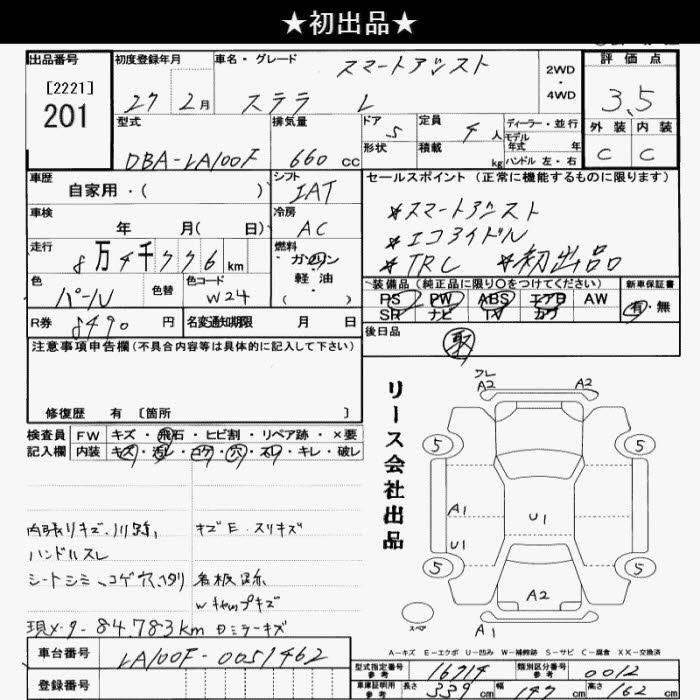 ★初出品★
出品番号
[2221]
201
初度登録年月
27 2月
車名・グレード
スマートアシスト
ステラ L
2WD
・
4WD
評価点
3.5
外装 内装
C C
型式
DBA-LA100F
排気量
660 cc
ドア 5
形状
定員 4 人
積載 kg
ディーラー・並行
モデル
年式 年
ハンドル 左・右
車歴
自家用・( )
シフト
IAT
車検
年 月( 日)
冷房
AC
走行
8万4千776 km
燃料
ガソリン
・
軽油
( )
色
パール
色替
色コード
W24
R券 8490 円
名変通知期限 月 日
セールスポイント(正常に機能するものに限ります)
*スマートアシスト
*エコアイドル
*TRC *初出品
装備品(純正品に限り○をつけてください)
PS PW ABS エアB AW
SR ナビ TV カワ
新車保証書
有・無
後日品
取
注意事項申告欄(不具合内容等は具体的に記入して下さい)
修復歴 有 [箇所 ]
検査員
記入欄
FW キズ・飛石・ヒビ割・リペア跡・×要
内装 キズ・汚レ・コゲ・穴・スレ・キレ・破レ
ハンドルスレ
キズE・スリキズ
シートシミ、コゲ穴、
Wキャップキズ
現メータ-84.783km Dミラーキズ
リース会社出品
クレ
A2 A2
5 5
A1
U1
U1
5 5
A2
スペア
A1
A-キズ E-エクボ U-凹み W-補修跡 S-サビ C-腐食 XX-交換済
車台番号 LA100F-0051462
登録番号
型式指定番号
参考
16714
類別区分番号
参考
0012
車庫証明用
参考
長さ 339 cm 幅 147 cm 高さ 162 cm